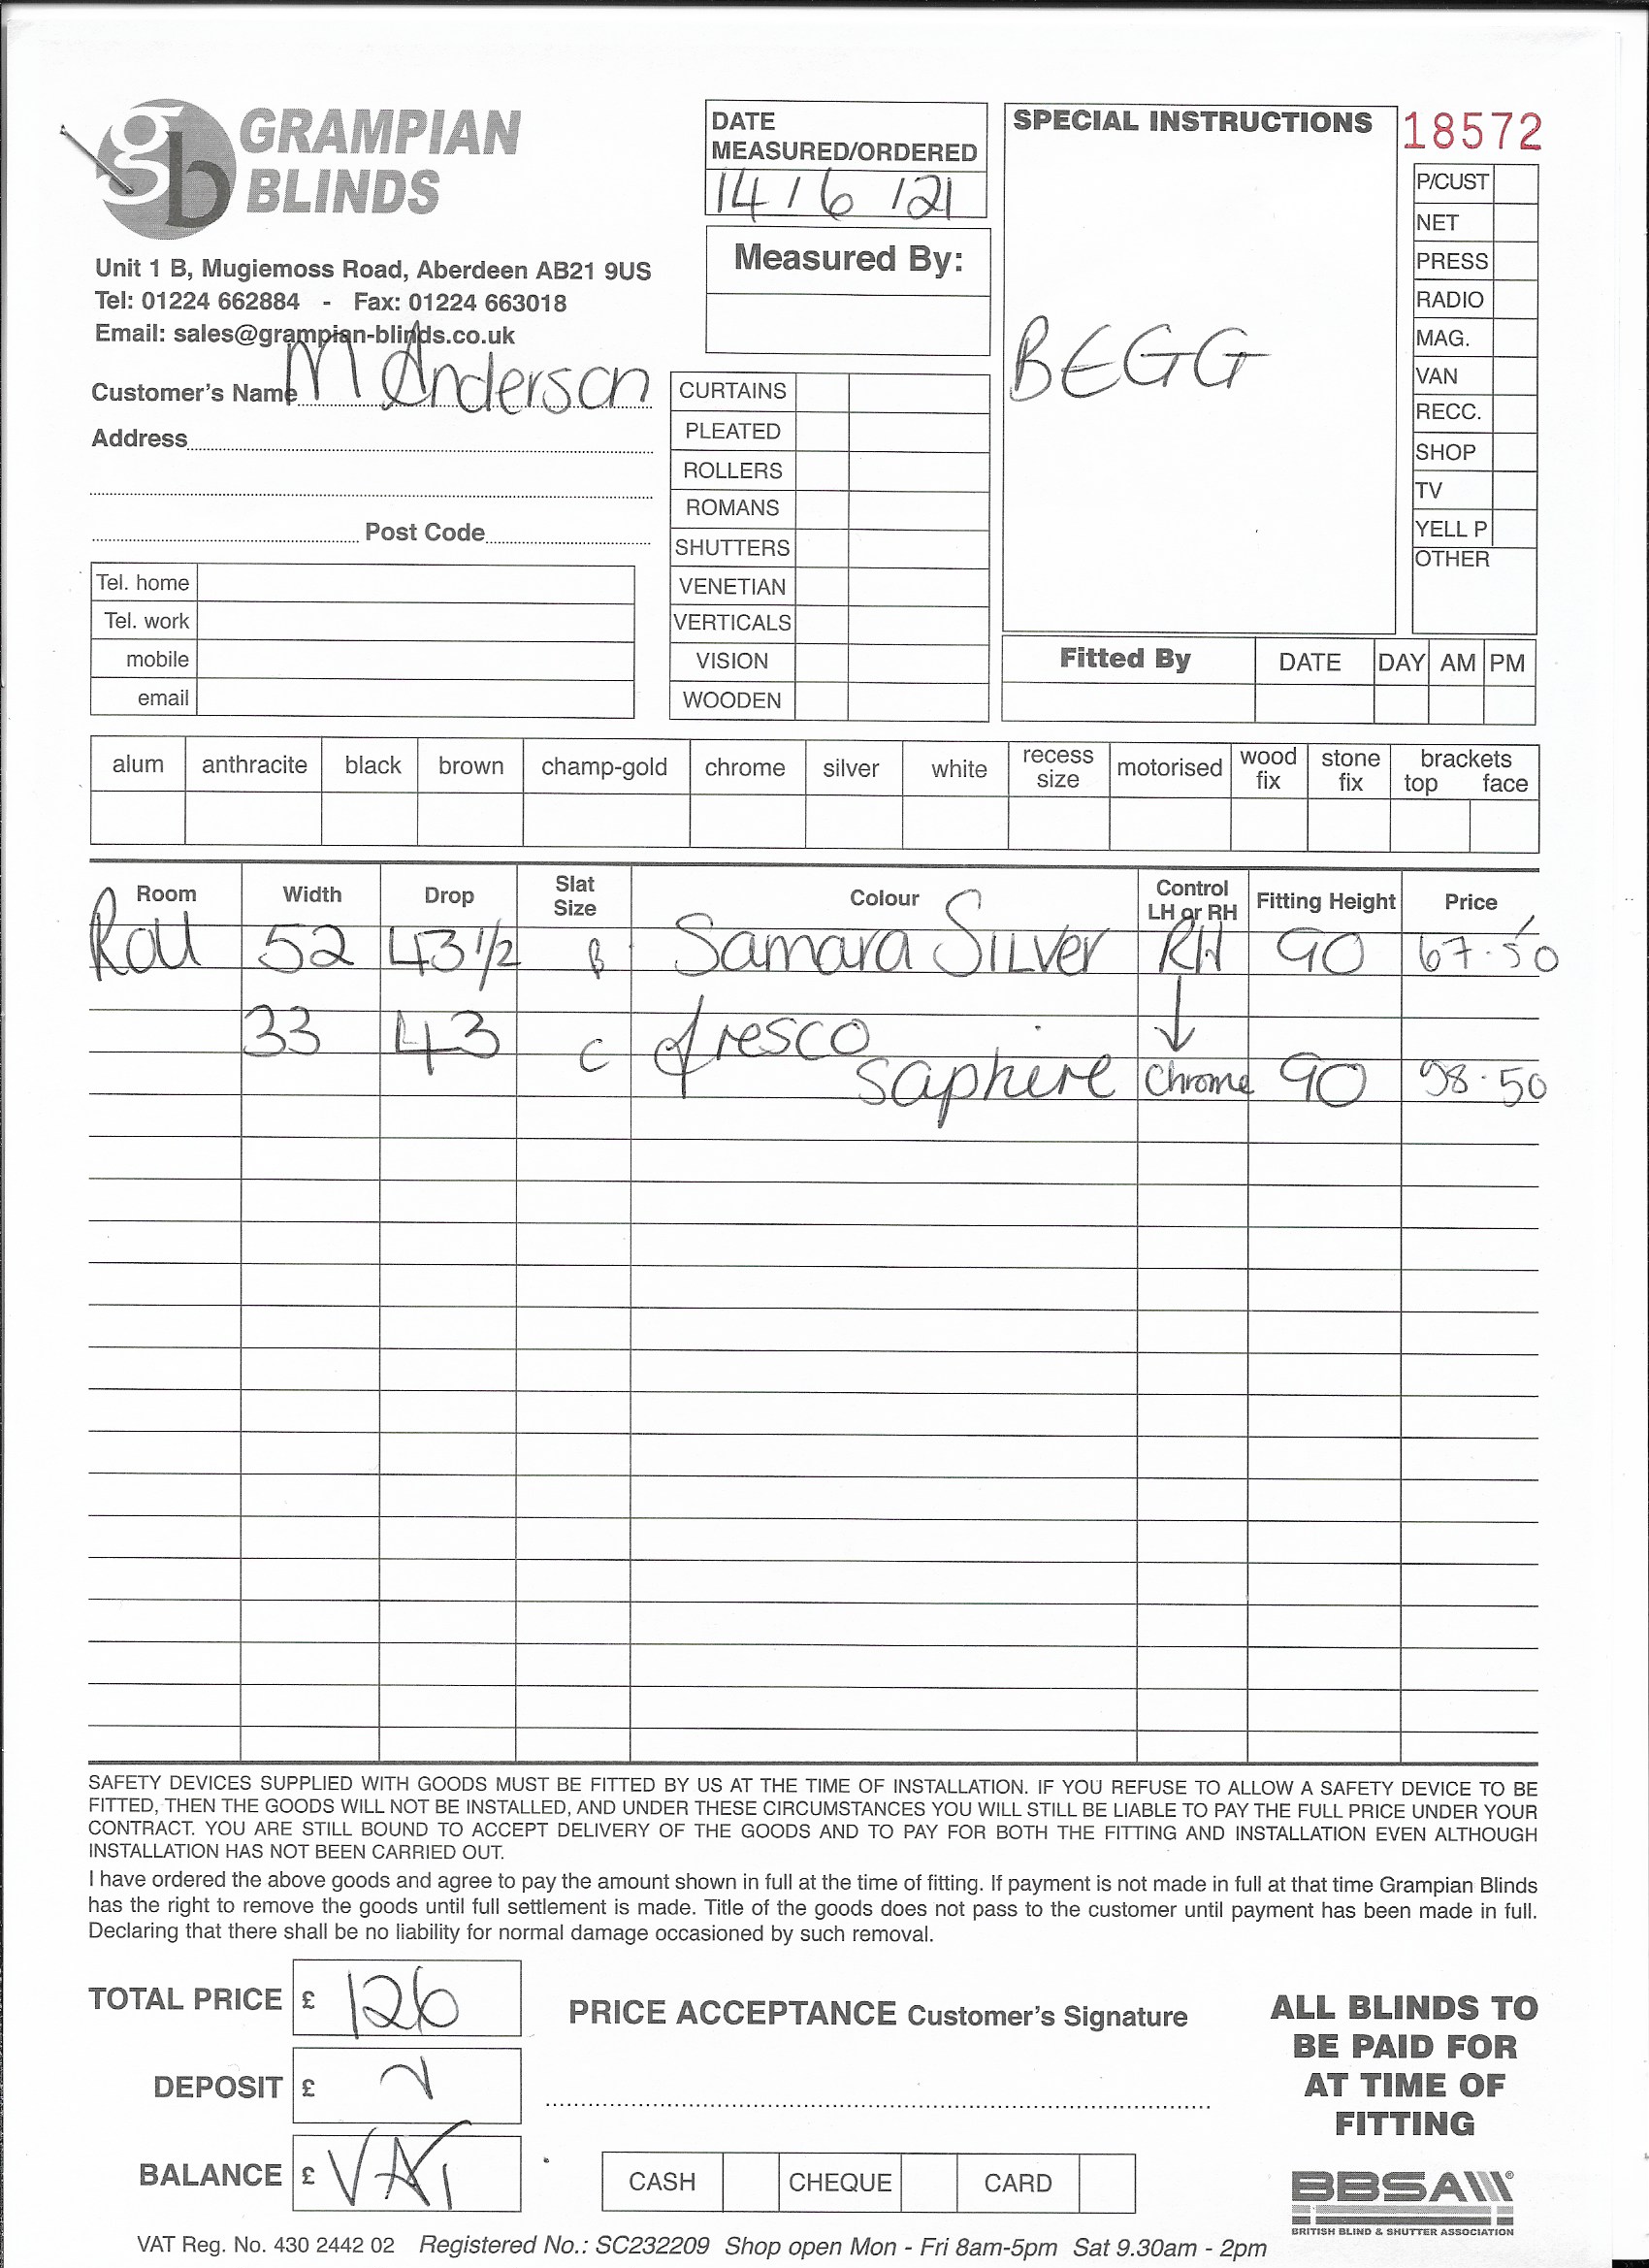 gb GRAMPIAN
BLINDS
Unit 1 B, Mugiemoss Road, Aberdeen AB21 9US
Tel: 01224 662884 - Fax: 01224 663018
Email: sales@grampian-blinds.co.uk
Customer's Name M Anderson
Address
Post Code
Tel. home
Tel. work
mobile
email
DATE
MEASURED/ORDERED
14/6/21
Measured By:
CURTAINS
PLEATED
ROLLERS
ROMANS
SHUTTERS
VENETIAN
VERTICALS
VISION
WOODEN
SPECIAL INSTRUCTIONS
BEGG
18572
P/CUST
NET
PRESS
RADIO
MAG.
VAN
RECC.
SHOP
TV
YELL P
OTHER
Fitted By DATE DAY AM PM
alum anthracite black brown champ-gold chrome silver white recess size motorised wood fix stone fix brackets top face
Room Width Drop Slat Size Colour Control LH or RH Fitting Height Price
Roll 52 43 1/2 B Samara Silver RH 90 67.50
33 43 C fresco
saphire Chrome 90 58.50
SAFETY DEVICES SUPPLIED WITH GOODS MUST BE FITTED BY US AT THE TIME OF INSTALLATION. IF YOU REFUSE TO ALLOW A SAFETY DEVICE TO BE
FITTED, THEN THE GOODS WILL NOT BE INSTALLED, AND UNDER THESE CIRCUMSTANCES YOU WILL STILL BE LIABLE TO PAY THE FULL PRICE UNDER YOUR
CONTRACT. YOU ARE STILL BOUND TO ACCEPT DELIVERY OF THE GOODS AND TO PAY FOR BOTH THE FITTING AND INSTALLATION EVEN ALTHOUGH
INSTALLATION HAS NOT BEEN CARRIED OUT.
I have ordered the above goods and agree to pay the amount shown in full at the time of fitting. If payment is not made in full at that time Grampian Blinds
has the right to remove the goods until full settlement is made. Title of the goods does not pass to the customer until payment has been made in full.
Declaring that there shall be no liability for normal damage occasioned by such removal.
TOTAL PRICE £ 126
DEPOSIT £
BALANCE £ VAT
PRICE ACCEPTANCE Customer's Signature
CASH CHEQUE CARD
ALL BLINDS TO
BE PAID FOR
AT TIME OF
FITTING
BBSA
BRITISH BLIND & SHUTTER ASSOCIATION
VAT Reg. No. 430 2442 02 Registered No.: SC232209 Shop open Mon - Fri 8am-5pm Sat 9.30am - 2pm